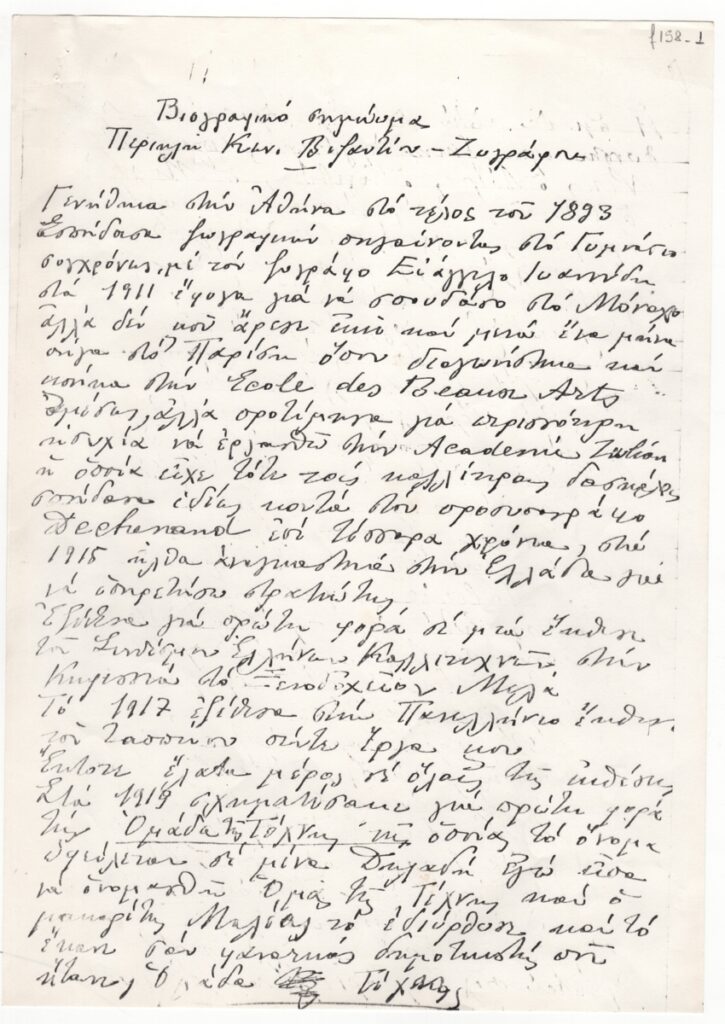 f158-1
Βιογραφικό σημείωμα
Περικλή Κων. Βυζαντίου - Ζωγράφου
Γενήθηκα στήν Ἀθήνα στό τέλος τοῦ 1893
Ἐσπούδασα ζωγραφικήν πηγαίνοντας στό Γυμνάσιο
συγχρόνως, μέ τόν ζωγράφο Εὐάγγελο Ἰωαννίδη
στά 1911 ἔφυγα γιά νά σπουδάσω στό Μόναχο
ἀλλά δέν μοῦ ἄρεσε ἐκεῖ καί μετά ἕνα μήνα
πῆγα στό Παρίσι ὅπου διαγωνίστηκα καί
μπῆκα στήν Ecole des Beaux Arts
ἀμέσως, ἀλλά προτίμησα γιά περισσότερη
ἡσυχία νά ἐργασθῶ στήν Academie Julian
ἡ ὁποία εἶχε τότε τούς καλλίτερους δασκάλους
σπούδασα ἰδίως κοντά στόν προσωπογράφο
Dechenaud ἐπί τέσσερα χρόνια, στά
1915 ἦλθα ἀναγκαστικά στήν Ἑλλάδα γιά
νά ὑπηρετήσω στρατιώτης
Ἐξέθεσα γιά πρώτη φορά σέ μιά ἔκθεση
τοῦ Συνδέσμου Ἑλλήνων Καλλιτεχνῶν στήν
Κηφισσιά στό Ξενοδοχεῖον Μελά
Τό 1917 ἐξέθεσα στήν Πανελλήνιο ἔκθεση
τοῦ Ζαππείου πέντε ἔργα μου
Ἔκτοτε ἔλαβα μέρος σέ ὅλες τίς ἐκθέσεις
Στά 1919 σχηματίσαμε γιά πρώτη φορά
τήν Ὁμάδα τῆς Τέχνης τῆς ὁποίας τό ὄνομα
ὀφείλεται σέ μένα Δηλαδή ἐγώ εἶπα
νά ὀνομασθῆ Ὁμάς τῆς Τέχνης καί ὁ
μακαρίτης Μαλέας τό ἐδιόρθωσε καί τό
ἔκανε σάν φανατικός δημοτικιστής πού
ἤταν, Ὁμάδα Τέχνης